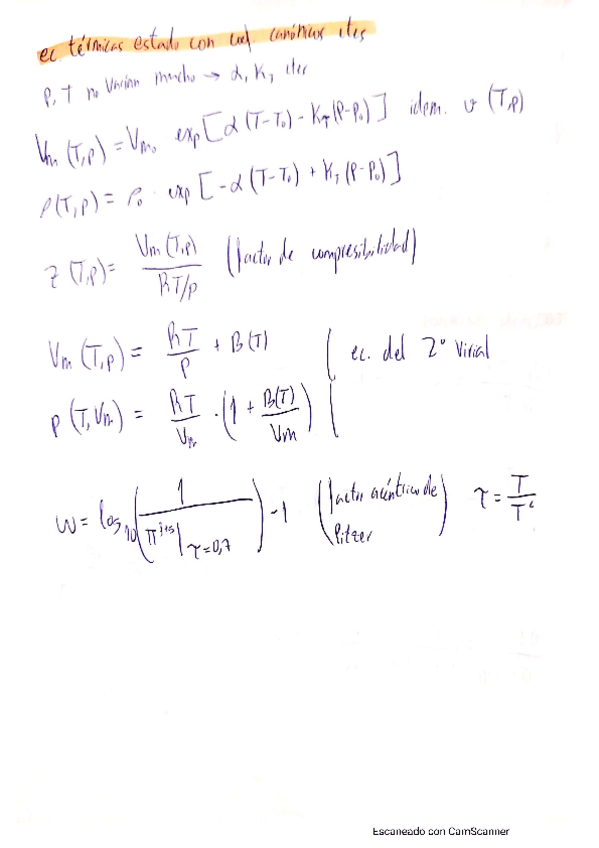 ec. térmicas estado con coef. canónicos ctes
P, T no varían mucho → α, K_T ctes
V_m (T,p) = V_m₀ exp[α(T-T₀) - K_T(P-P₀)] idem. v (T,p)
ρ(T,p) = ρ₀ · exp[-α(T-T₀) + K_T(P-P₀)]
z (T,p) = V_m(T,p) / RT/p (factor de compresibilidad)
V_m (T,p) = RT/P + B(T) ec. del 2º Virial
p (T,V_m) = RT/V_m · (1 + B(T)/V_m)
ω = log₁₀(1/π^j+s|τ=0,7) - 1 (factor acéntrico de Pitzer) τ = T/T^c
Escaneado con CamScanner